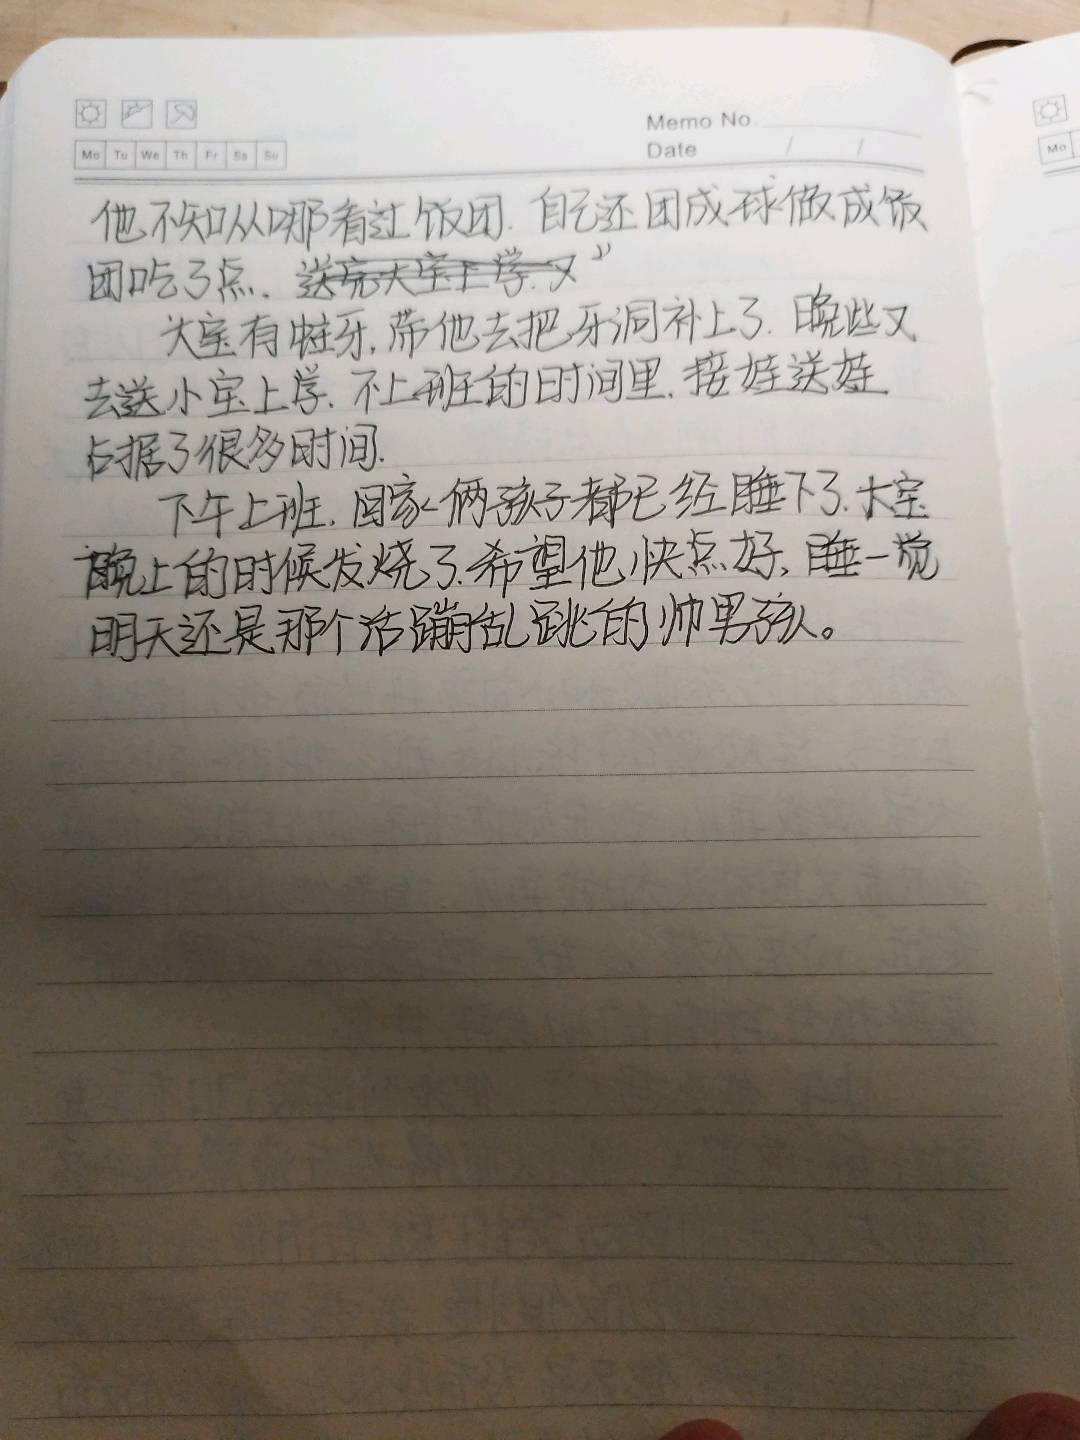 Memo No.
Date / /
Mo Tu We Th Fr Sa Su
Mo
他不知从哪看过饭团.自己还团成球做成饭
团吃了点.送完大宝上学.又
大宝有蛀牙,带他去把牙洞补上了.晚些又
去送小宝上学.不上班的时间里.接娃送娃
占据了很多时间.
下午上班.回家俩孩子都已经睡下了.大宝
晚上的时候发烧了.希望他快点好、睡一觉
明天还是那个活蹦乱跳的帅男孩。